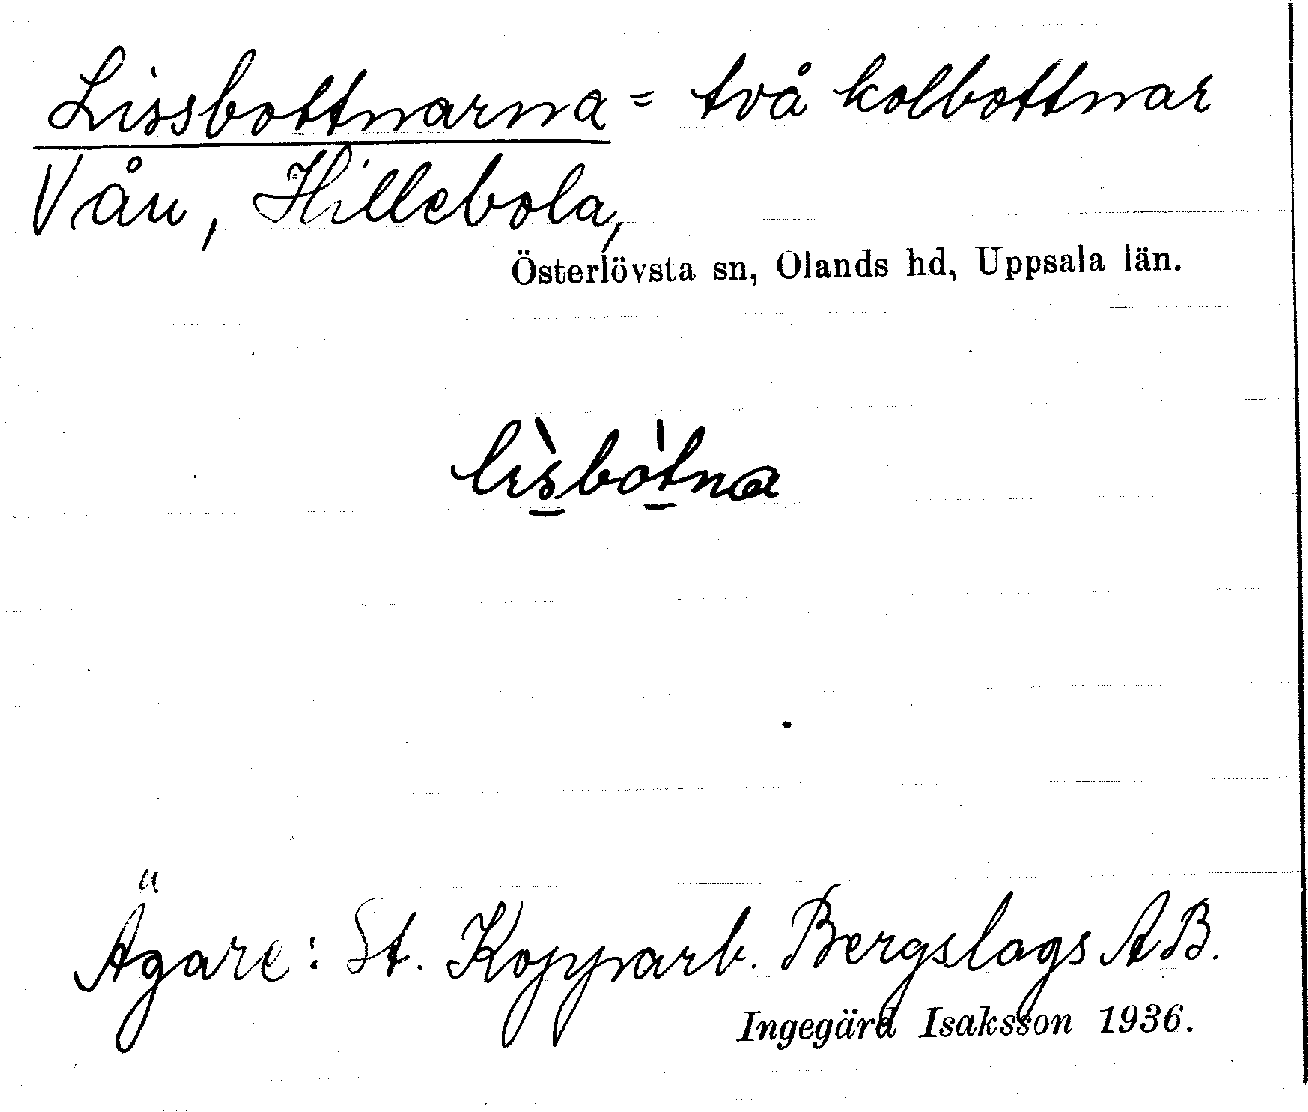 Lissbottnarna = två kolbottnar
Vån, Hillebola,
Österlövsta sn, Olands hd, Uppsala län.
lìs̠bòt̠na
Ägare: St. Kopparb. Bergslags AB.
Ingegärd Isaksson 1936.